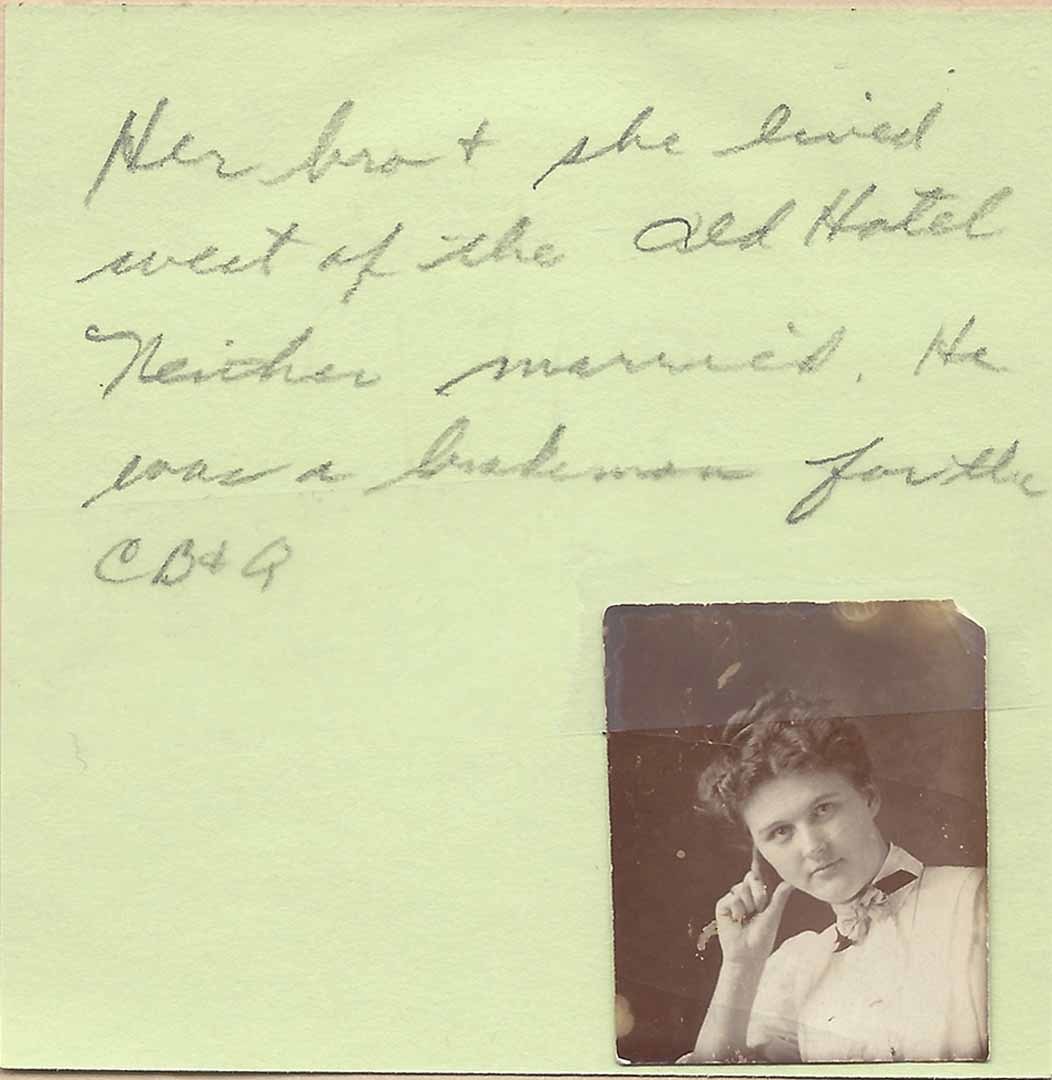 Her bro + she lived
west of the old Hotel
Neither married. He
was a brakeman for the
CB+Q